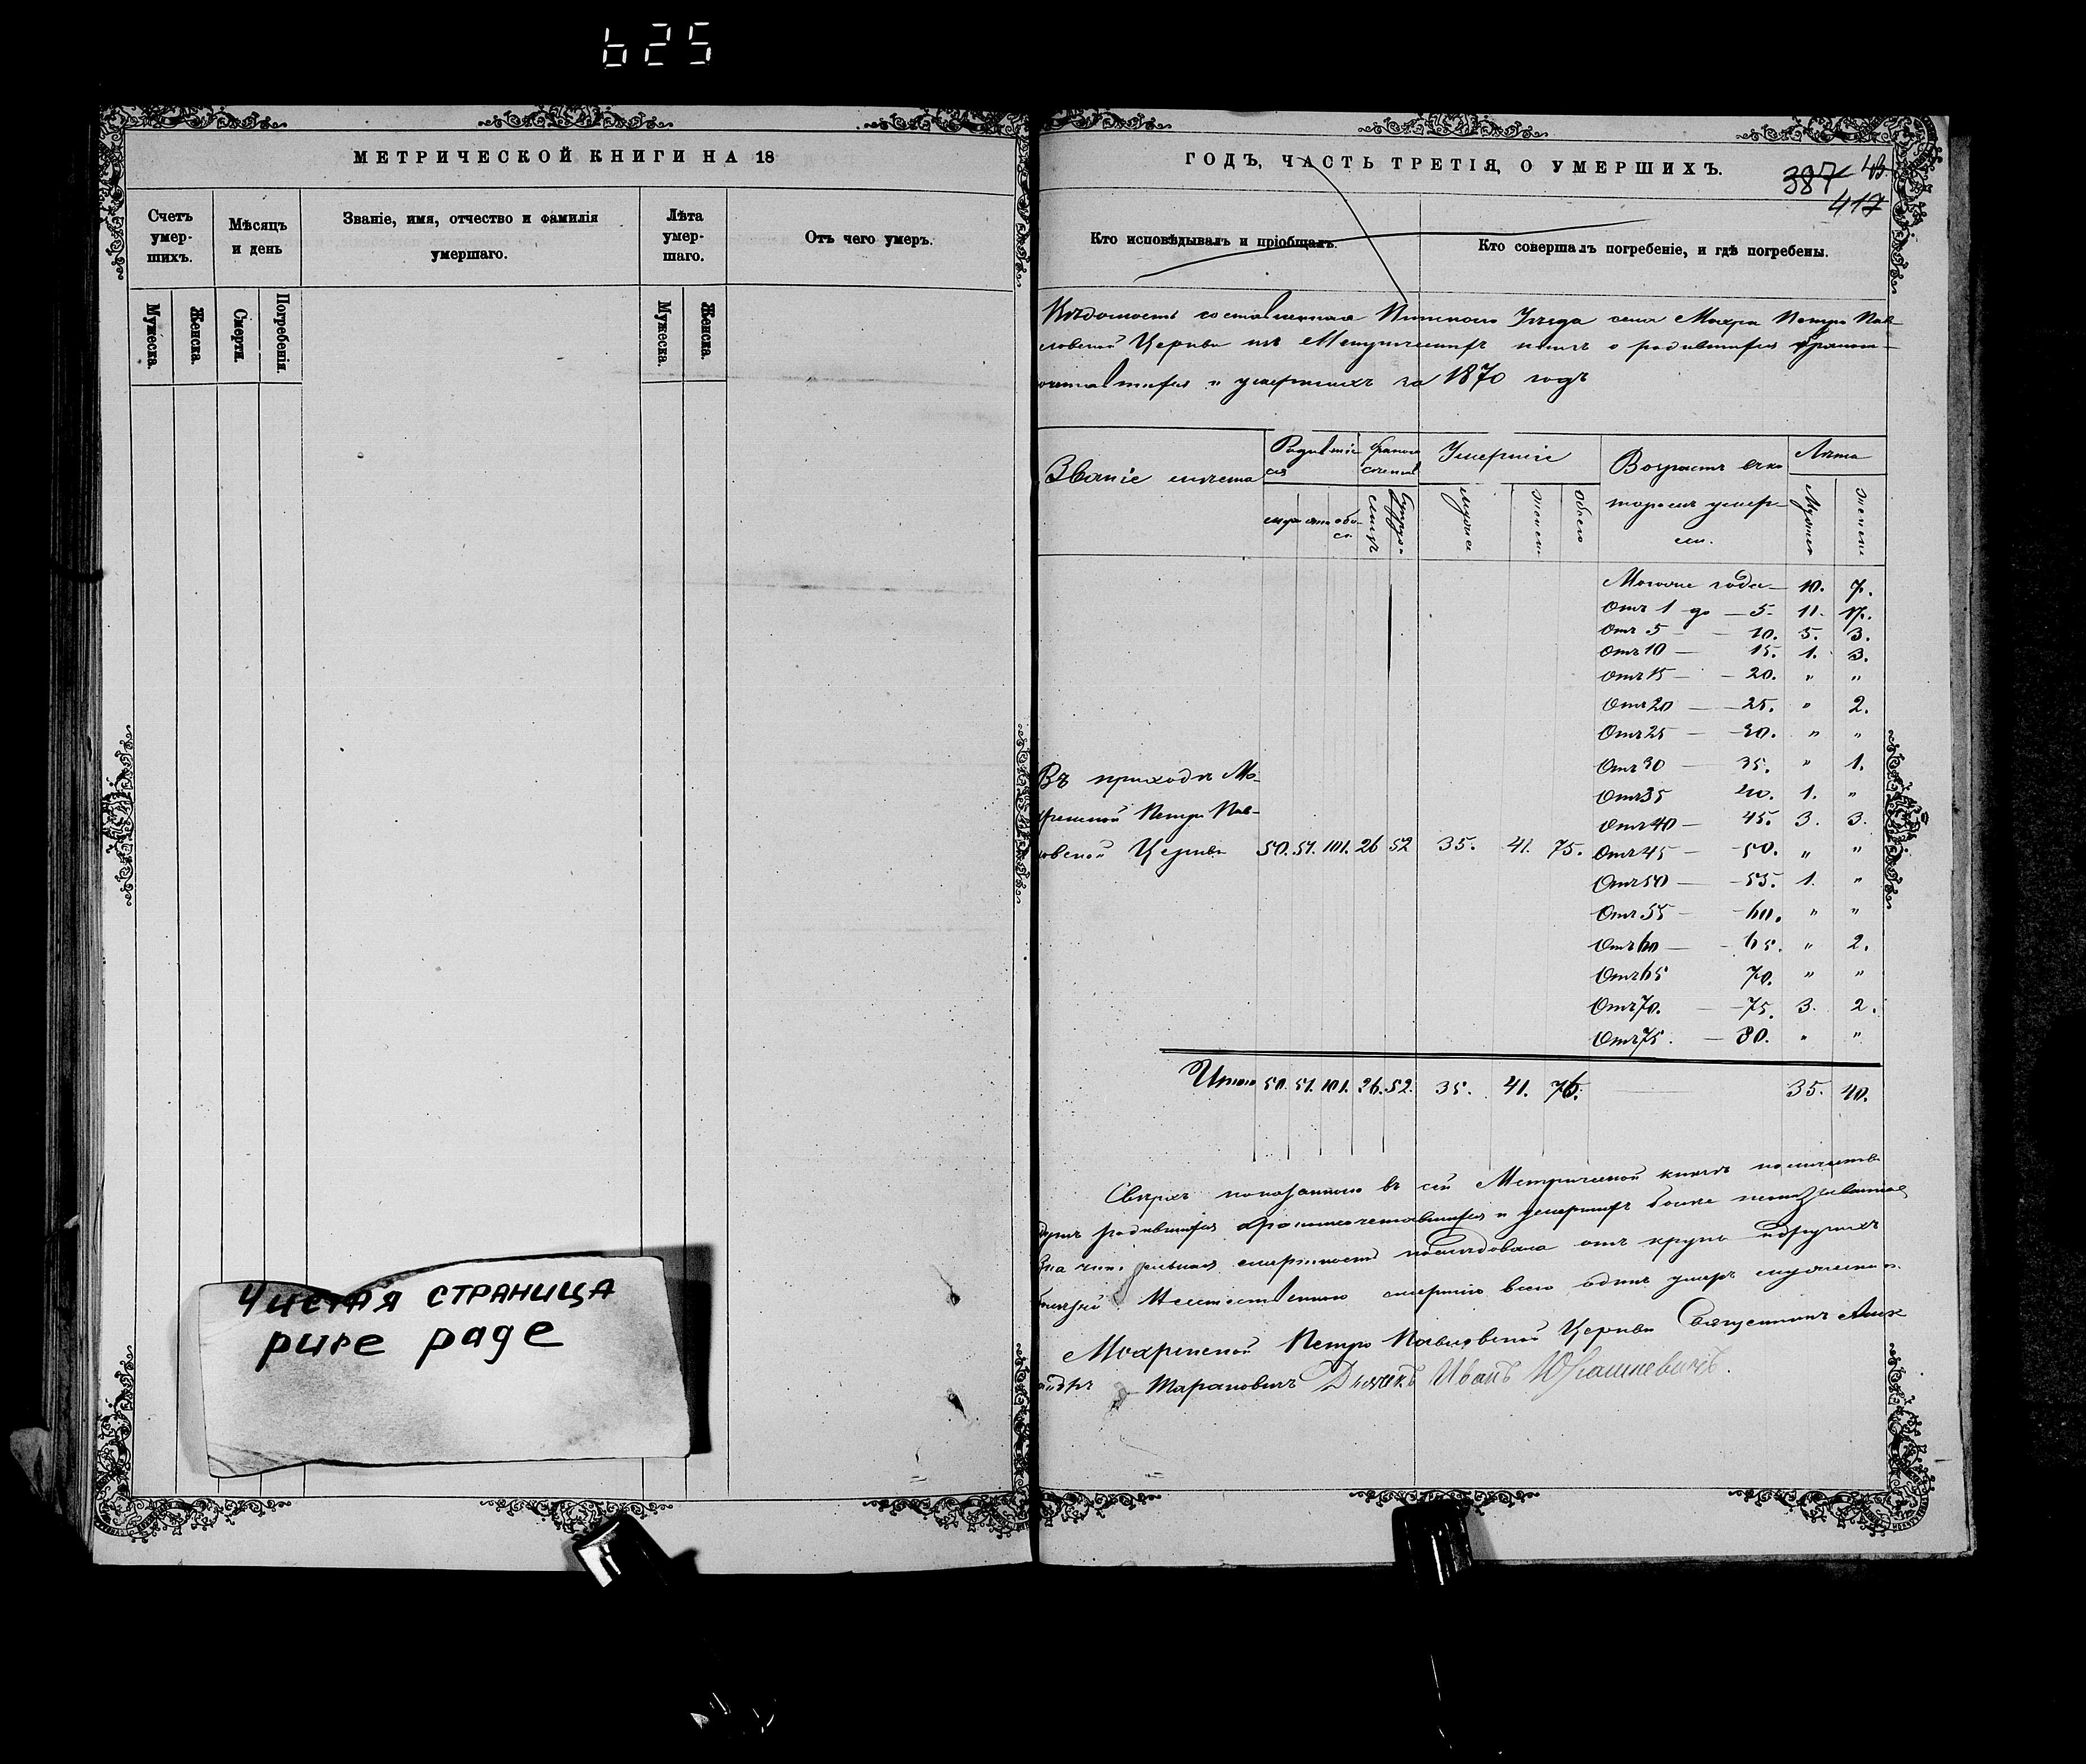 625
МЕТРИЧЕСКОЙ КНИГИ НА 18
Счетъ умер-шихъ.
Мѣсяцъ и день
Званіе, имя, отчество и фамилія умершаго.
Лѣта умер-шаго.
Отъ чего умеръ.
Мужеска.
Женска.
Смерти.
Погребенія.
Мужеска.
Женска.
Чистая страница
pure page
ГОДЪ, ЧАСТЬ ТРЕТІЯ, О УМЕРШИХЪ.
387
417
Кто исповѣдывалъ и пріобщалъ.
Кто совершалъ погребеніе, и гдѣ погребены.
Вѣдомость составленная Пинскаго Уѣзда села Мохра Петро Пав-
ловской Церкви изъ Метрическихъ книгъ о родившихся бракосо-
четавшихся и умершихъ за 1870 годъ
Званіе мѣста
Родившіе
ся
Умершіе
Возрастъ
Лѣта
муж
обо
мужск
женск
обоего
Мужск
женск
Моложе года — 10. 7.
Отъ 1 до — 5. 11. 17.
Отъ 5 — 10. 5. 3.
Отъ 10 — 15. 1. 3.
Отъ 15 — 20. " "
Отъ 20 — 25. " 2.
Отъ 25 — 30. " "
Отъ 30 — 35. " 1.
Отъ 35 40. 1. "
Отъ 40 — 45. 3. 3.
Отъ 45 — 50. " "
Отъ 50 — 55. 1. "
Отъ 55 — 60. " "
Отъ 60 — 65. " 2.
Отъ 65 70. " "
Отъ 70. — 75. 3. 2.
Отъ 75. — 80. " "
Въ приходѣ Мо-
хренской Петро Пав-
ловской Церкви 50. 51. 101. 26 52 35. 41. 75.
Итого 50. 51. 101. 26. 52. 35. 41. 76. 35. 40.
Сверхъ показанного въ сей Метрической книгѣ
родившихся бракосочетавшихся и умершихъ болѣе
смертность послѣдовала отъ крупа
смертію всего одинъ умеръ
Мохренской Петро Павловской Церкви Священникъ Алек
сандръ Тарановичъ Дьячекъ Иванъ